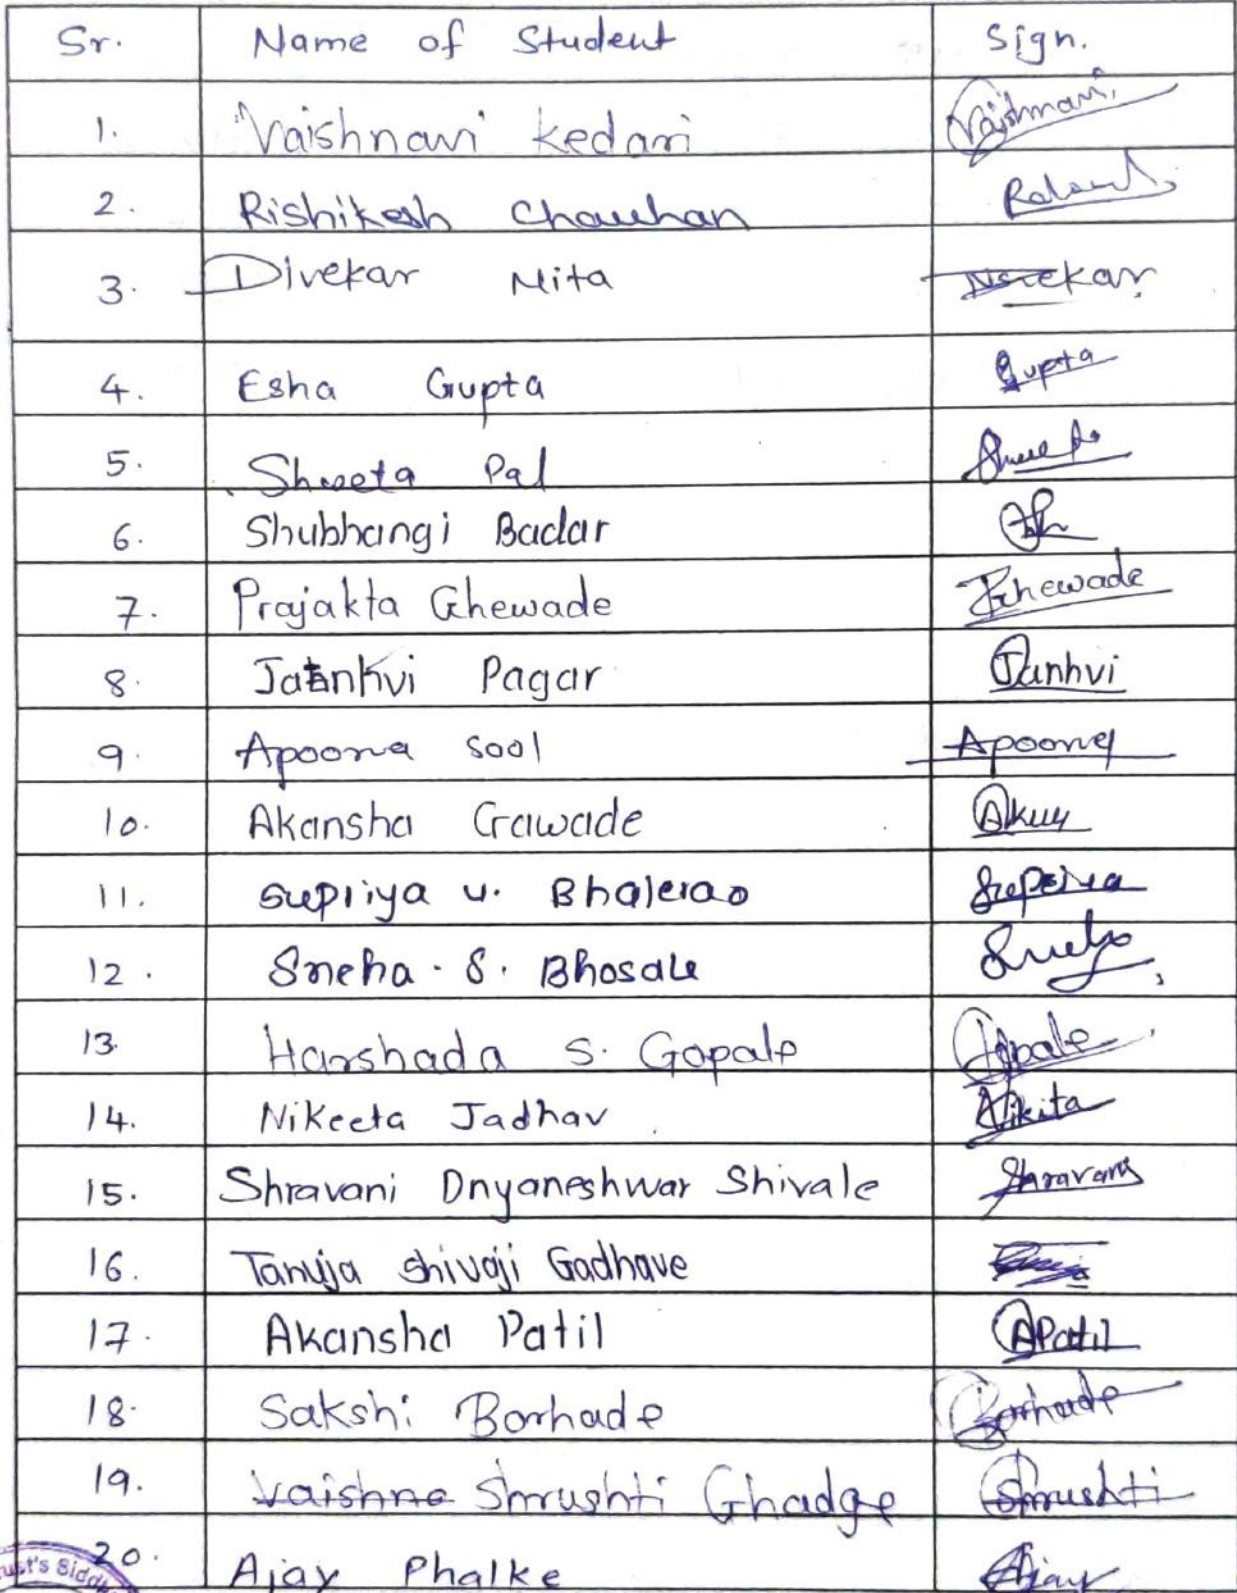 Sr. Name of Student Sign.
1. Vaishnavi Kedari Vaishnavi
2. Rishikesh Chauhan
3. Divekar Nita
4. Esha Gupta Gupta
5. Shweta Pal
6. Shubhangi Badar
7. Prajakta Ghewade Ghewade
8. Janhvi Pagar Janhvi
9. Apoorva Sool Apoorva
10. Akansha Gawade
11. Supriya U. Bhalerao Supriya
12. Sneha . S. Bhosale
13. Harshada S. Gopale Gopale
14. Nikeeta Jadhav Nikita
15. Shravani Dnyaneshwar Shivale Shravani
16. Tanuja Shivaji Gadhave
17. Akansha Patil APatil
18. Sakshi Borhade Borhade
19. Vaishna Shrushti Ghadge Shrushti
20. Ajay Phalke Ajay
ust's Sid